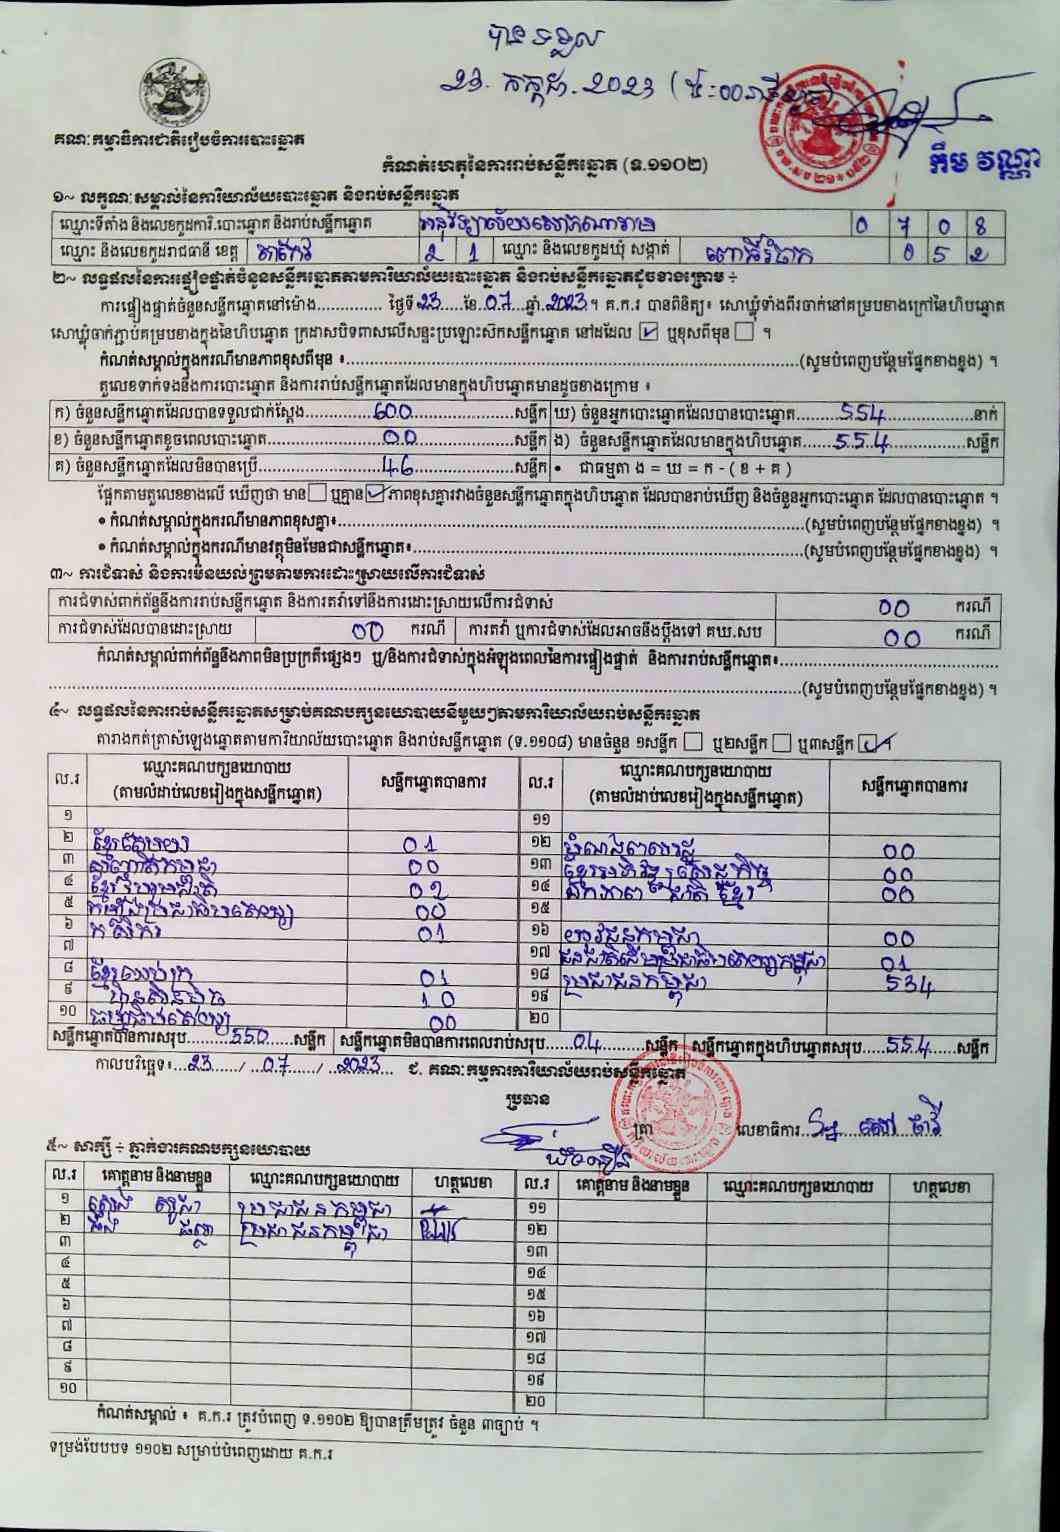 បានទទួល
23. កក្កដា. 2023
គណៈកម្មាធិការជាតិរៀបចំការបោះឆ្នោត
កឹម វណ្ណា
កំណត់ហេតុនៃការរាប់សន្លឹកឆ្នោត (ទ.១១០២)
១~ លក្ខណៈសម្គាល់នៃការិយាល័យបោះឆ្នោត និងរាប់សន្លឹកឆ្នោត
ឈ្មោះទីតាំង និងលេខកូដការិ.បោះឆ្នោត និងរាប់សន្លឹកឆ្នោត 0 7 0 8
ឈ្មោះ និងលេខកូដរាជធានី ខេត្ត តាកែវ 2 1 ឈ្មោះ និងលេខកូដឃុំ សង្កាត់ 0 5 2
២~ លទ្ធផលនៃការផ្ទៀងផ្ទាត់ចំនួនសន្លឹកឆ្នោតតាមការិយាល័យបោះឆ្នោត និងរាប់សន្លឹកឆ្នោតដូចខាងក្រោម ÷
ការផ្ទៀងផ្ទាត់ចំនួនសន្លឹកឆ្នោតនៅម៉ោង............... ថ្ងៃទី 23 ខែ 07 ឆ្នាំ 2023 ។ គ.ក.រ បានពិនិត្យ៖ សោឃ្លុំទាំងពីរចាក់នៅគម្របខាងក្រៅនៃហិបឆ្នោត
សោឃ្លុំចាក់ភ្ជាប់គម្របខាងក្នុងនៃហិបឆ្នោត ក្រដាសបិទពាសលើសន្ទះប្រឡោះស៊កសន្លឹកឆ្នោត នៅដដែល ✓ ឬខុសពីមុន ។
កំណត់សម្គាល់ក្នុងករណីមានភាពខុសពីមុន ៖............(សូមបំពេញបន្ថែមផ្នែកខាងខ្នង) ។
តួលេខទាក់ទងនឹងការបោះឆ្នោត និងការរាប់សន្លឹកឆ្នោតដែលមានក្នុងហិបឆ្នោតមានដូចខាងក្រោម ៖
ក) ចំនួនសន្លឹកឆ្នោតដែលបានទទួលជាក់ស្តែង 600 សន្លឹក ឃ) ចំនួនអ្នកបោះឆ្នោតដែលបានបោះឆ្នោត 554 នាក់
ខ) ចំនួនសន្លឹកឆ្នោតខូចពេលបោះឆ្នោត 00 សន្លឹក ង) ចំនួនសន្លឹកឆ្នោតដែលមានក្នុងហិបឆ្នោត 554 សន្លឹក
គ) ចំនួនសន្លឹកឆ្នោតដែលមិនបានប្រើ 46 សន្លឹក • ជាធម្មតា ង = ឃ = ក - ( ខ + គ )
ផ្អែកតាមតួលេខខាងលើ ឃើញថា មាន ឬគ្មាន ✓ ភាពខុសគ្នារវាងចំនួនសន្លឹកឆ្នោតក្នុងហិបឆ្នោត ដែលបានរាប់ឃើញ និងចំនួនអ្នកបោះឆ្នោត ដែលបានបោះឆ្នោត ។
• កំណត់សម្គាល់ក្នុងករណីមានភាពខុសគ្នា៖............(សូមបំពេញបន្ថែមផ្នែកខាងខ្នង) ។
• កំណត់សម្គាល់ក្នុងករណីមានវត្ថុមិនមែនជាសន្លឹកឆ្នោត៖............(សូមបំពេញបន្ថែមផ្នែកខាងខ្នង) ។
៣~ ការជំទាស់ និងការមិនយល់ព្រមតាមការដោះស្រាយលើការជំទាស់
ការជំទាស់ពាក់ព័ន្ធនឹងការរាប់សន្លឹកឆ្នោត និងការតវ៉ាទៅនឹងការដោះស្រាយលើការជំទាស់ 00 ករណី
ការជំទាស់ដែលបានដោះស្រាយ 00 ករណី ការតវ៉ា ឬការជំទាស់ដែលអាចនឹងប្តឹងទៅ គឃ.សប 00 ករណី
កំណត់សម្គាល់ពាក់ព័ន្ធនឹងភាពមិនប្រក្រតីផ្សេងៗ ឬ/និងការជំទាស់ក្នុងអំឡុងពេលនៃការផ្ទៀងផ្ទាត់ និងការរាប់សន្លឹកឆ្នោត៖............
............(សូមបំពេញបន្ថែមផ្នែកខាងខ្នង) ។
៤~ លទ្ធផលនៃការរាប់សន្លឹកឆ្នោតសម្រាប់គណបក្សនយោបាយនីមួយៗតាមការិយាល័យរាប់សន្លឹកឆ្នោត
តារាងកត់ត្រាសំឡេងឆ្នោតតាមការិយាល័យបោះឆ្នោត និងរាប់សន្លឹកឆ្នោត (ទ.១១០៨) មានចំនួន ១សន្លឹក ឬ២សន្លឹក ឬ៣សន្លឹក ✓ ។
ល.រ ឈ្មោះគណបក្សនយោបាយ (តាមលំដាប់លេខរៀងក្នុងសន្លឹកឆ្នោត) សន្លឹកឆ្នោតបានការ ល.រ ឈ្មោះគណបក្សនយោបាយ (តាមលំដាប់លេខរៀងក្នុងសន្លឹកឆ្នោត) សន្លឹកឆ្នោតបានការ
១ ១១
២ 01 ១២ 00
៣ 00 ១៣ 00
៤ 02 ១៤ ឯកភាពជាតិខ្មែរ 00
៥ 00 ១៥
៦ កសិករ 01 ១៦ យុវជនកម្ពុជា 00
៧ ១៧ ជនជាតិដើមប្រជាធិបតេយ្យកម្ពុជា 01
៨ 01 ១៨ ប្រជាជនកម្ពុជា 534
៩ ហ៊្វុនស៊ិនប៉ិច 10 ១៩
១០ ធម្មាធិបតេយ្យ 00 ២០
សន្លឹកឆ្នោតបានការសរុប 550 សន្លឹក សន្លឹកឆ្នោតមិនបានការពេលរាប់សរុប 04 សន្លឹក សន្លឹកឆ្នោតក្នុងហិបឆ្នោតសរុប 554 សន្លឹក
កាលបរិច្ឆេទ៖ 23 / 07 / 2023 ជ. គណៈកម្មការការិយាល័យរាប់សន្លឹកឆ្នោត
ប្រធាន
ត្រា លេខាធិការ
៥~ សាក្សី ÷ ភ្នាក់ងារគណបក្សនយោបាយ
ល.រ គោត្តនាម និងនាមខ្លួន ឈ្មោះគណបក្សនយោបាយ ហត្ថលេខា ល.រ គោត្តនាម និងនាមខ្លួន ឈ្មោះគណបក្សនយោបាយ ហត្ថលេខា
១ ប្រជាជនកម្ពុជា ១១
២ ប្រជាជនកម្ពុជា ១២
៣ ១៣
៤ ១៤
៥ ១៥
៦ ១៦
៧ ១៧
៨ ១៨
៩ ១៩
១០ ២០
កំណត់សម្គាល់ ៖ គ.ក.រ ត្រូវបំពេញ ទ.១១០២ ឱ្យបានត្រឹមត្រូវ ចំនួន ៣ច្បាប់ ។
ទម្រង់បែបបទ ១១០២ សម្រាប់បំពេញដោយ គ.ក.រ